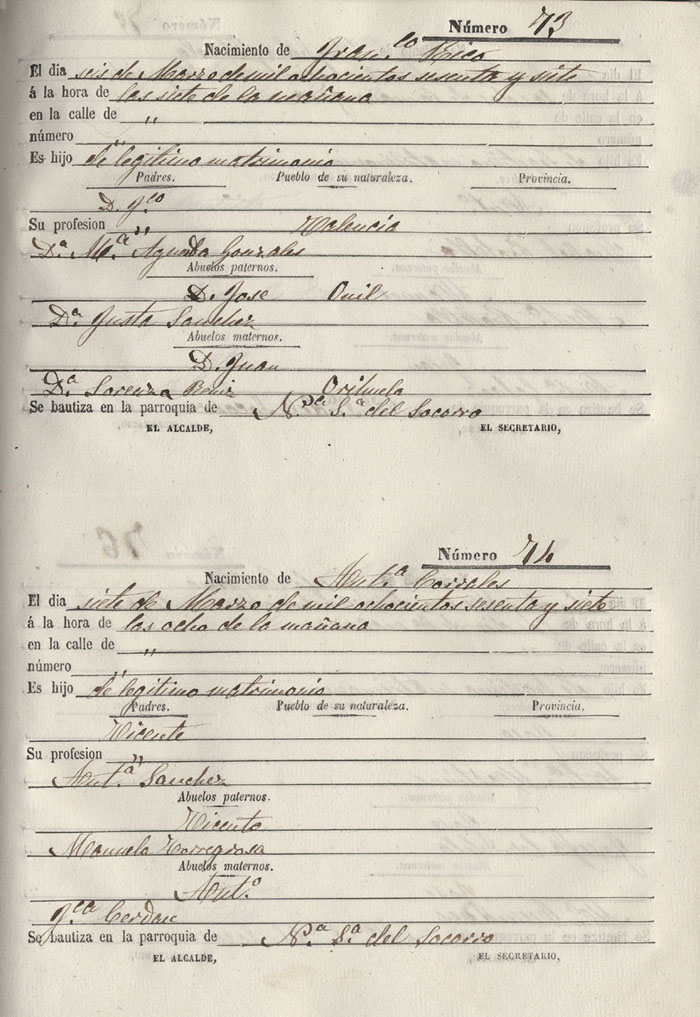 Número 73
Nacimiento de Fran.co Rico
El dia seis de Marzo de mil ochocientos sesenta y siete
á la hora de las siete de la mañana
en la calle de "
número "
Es hijo de legitimo matrimonio
Padres. Pueblo de su naturaleza. Provincia.
D. Fco
Su profesion " Valencia
Da. Ma. Agueda Gonzales
Abuelos paternos.
D. Jose Onil
Da. Justa Sanchez
Abuelos maternos.
D. Juan
Da. Lorenza Orihuela
Se bautiza en la parroquia de N.a S.a del Socorro
EL ALCALDE, EL SECRETARIO,
Número 74
Nacimiento de Ant.a Corrales
El dia siete de Marzo de mil ochocientos sesenta y siete
á la hora de las ocho de la mañana
en la calle de "
número "
Es hijo de legitimo matrimonio
Padres. Pueblo de su naturaleza. Provincia.
Vicente
Su profesion "
Ant.a Sanchez
Abuelos paternos.
Vicente
Manuela Torregrosa
Abuelos maternos.
Ant.o
Fca Cerdan
Se bautiza en la parroquia de N.a S.a del Socorro
EL ALCALDE, EL SECRETARIO,